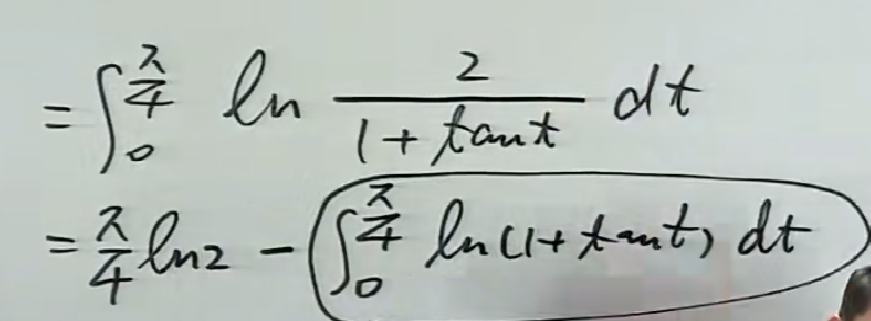 = ∫₀^{π/4} ln \frac{2}{1 + tan t} dt
= \frac{π}{4} ln 2 − ∫₀^{π/4} ln(1 + tan t) dt